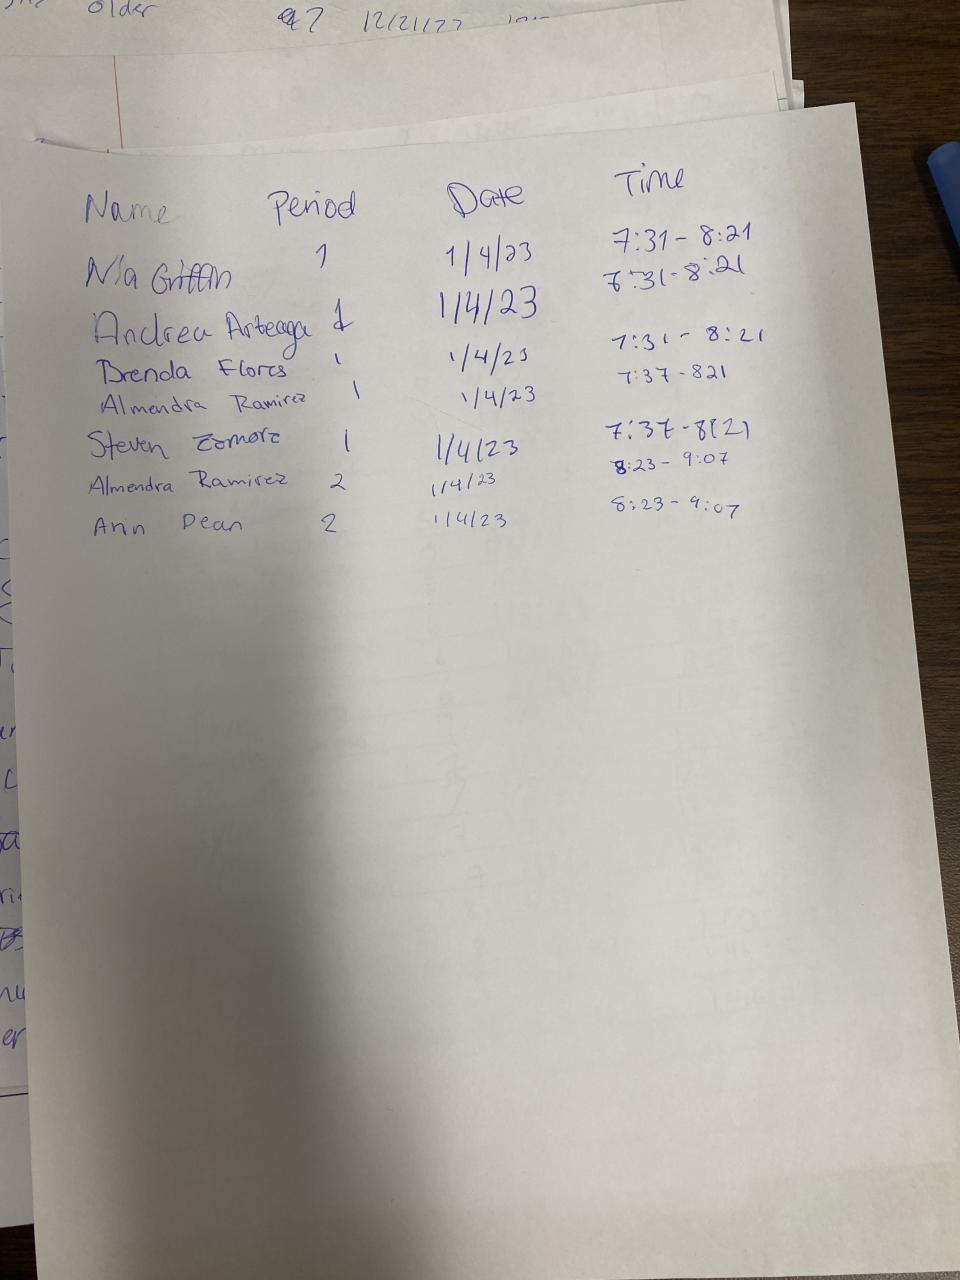 older 7 12/21/22
Name Period Date Time
Nia Griffin 1 1/4/23 7:31 - 8:21
Andrea Arteaga 1 1/4/23 7:31 - 8:21
Brenda Flores 1 1/4/23 7:31 - 8:21
Almendra Ramirez 1 1/4/23 7:37 - 821
Steven 1 1/4/23 7:37 - 8:21
Almendra Ramirez 2 1/4/23 8:23 - 9:07
Ann Dean 2 1/4/23 8:23 - 9:07